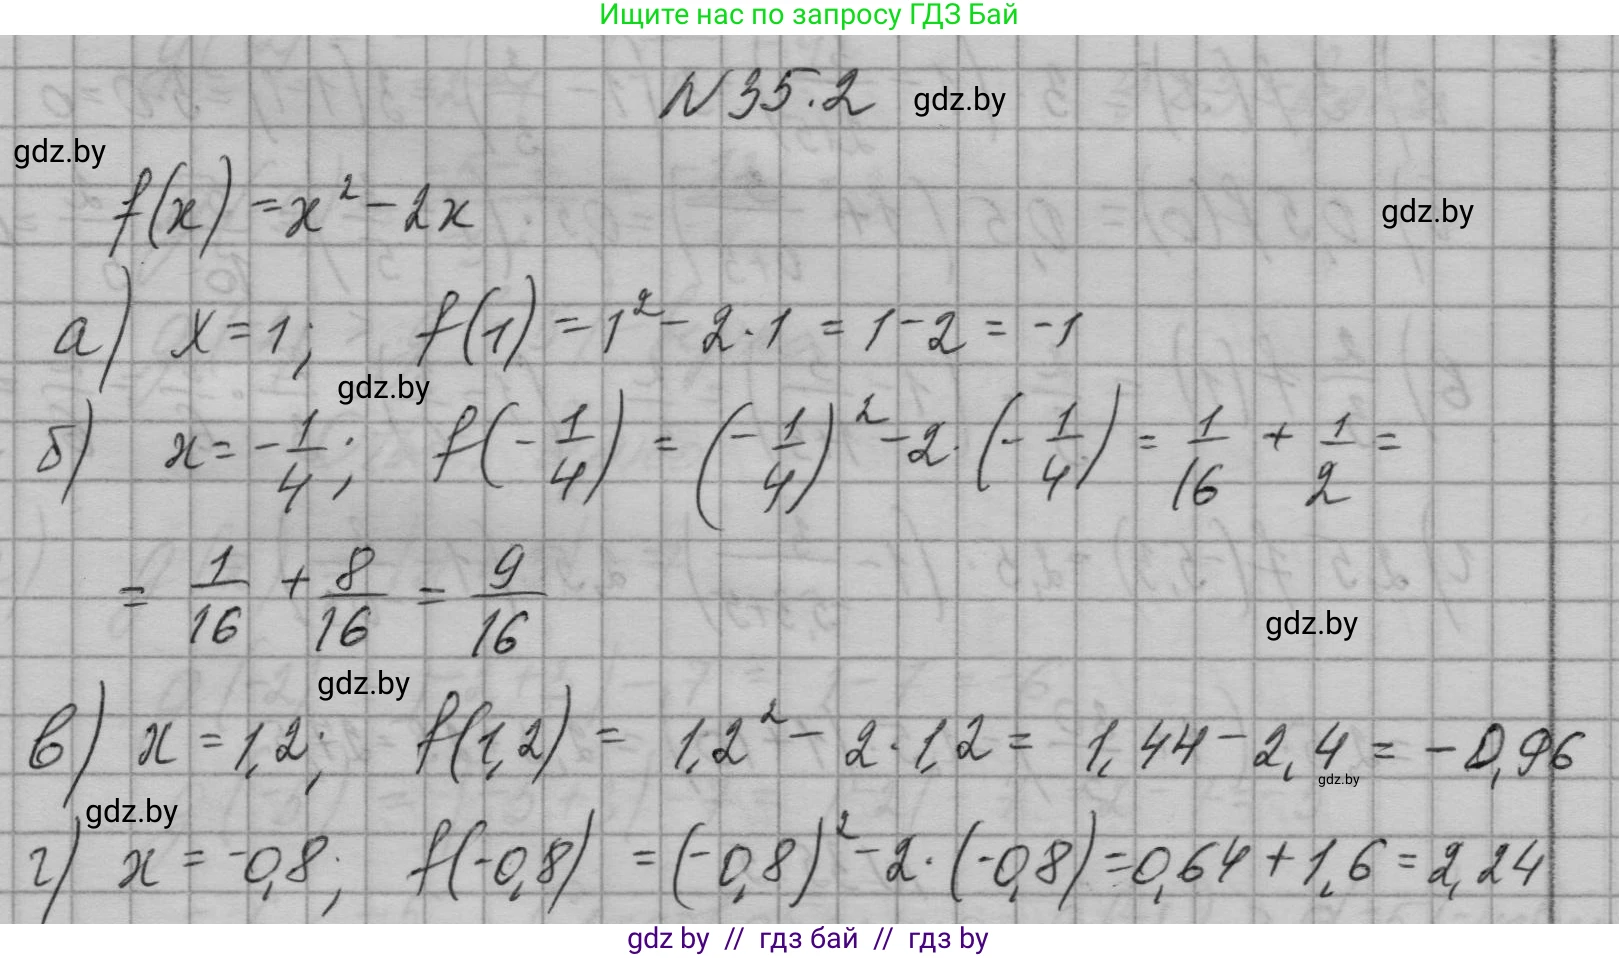 Ищите нас по запросу ГДЗ Бай
N 35.2 gdz.by
gdz.by
f(x) = x² - 2x
gdz.by
а) x = 1; f(1) = 1² - 2·1 = 1 - 2 = -1
gdz.by
б) x = -1/4; f(-1/4) = (-1/4)² - 2·(-1/4) = 1/16 + 1/2 =
= 1/16 + 8/16 = 9/16
gdz.by
gdz.by
в) x = 1,2; f(1,2) = 1,2² - 2·1,2 = 1,44 - 2,4 = -0,96
gdz.by
gdz.by
г) x = -0,8; f(-0,8) = (-0,8)² - 2·(-0,8) = 0,64 + 1,6 = 2,24
gdz by // гдз бай // гдз by